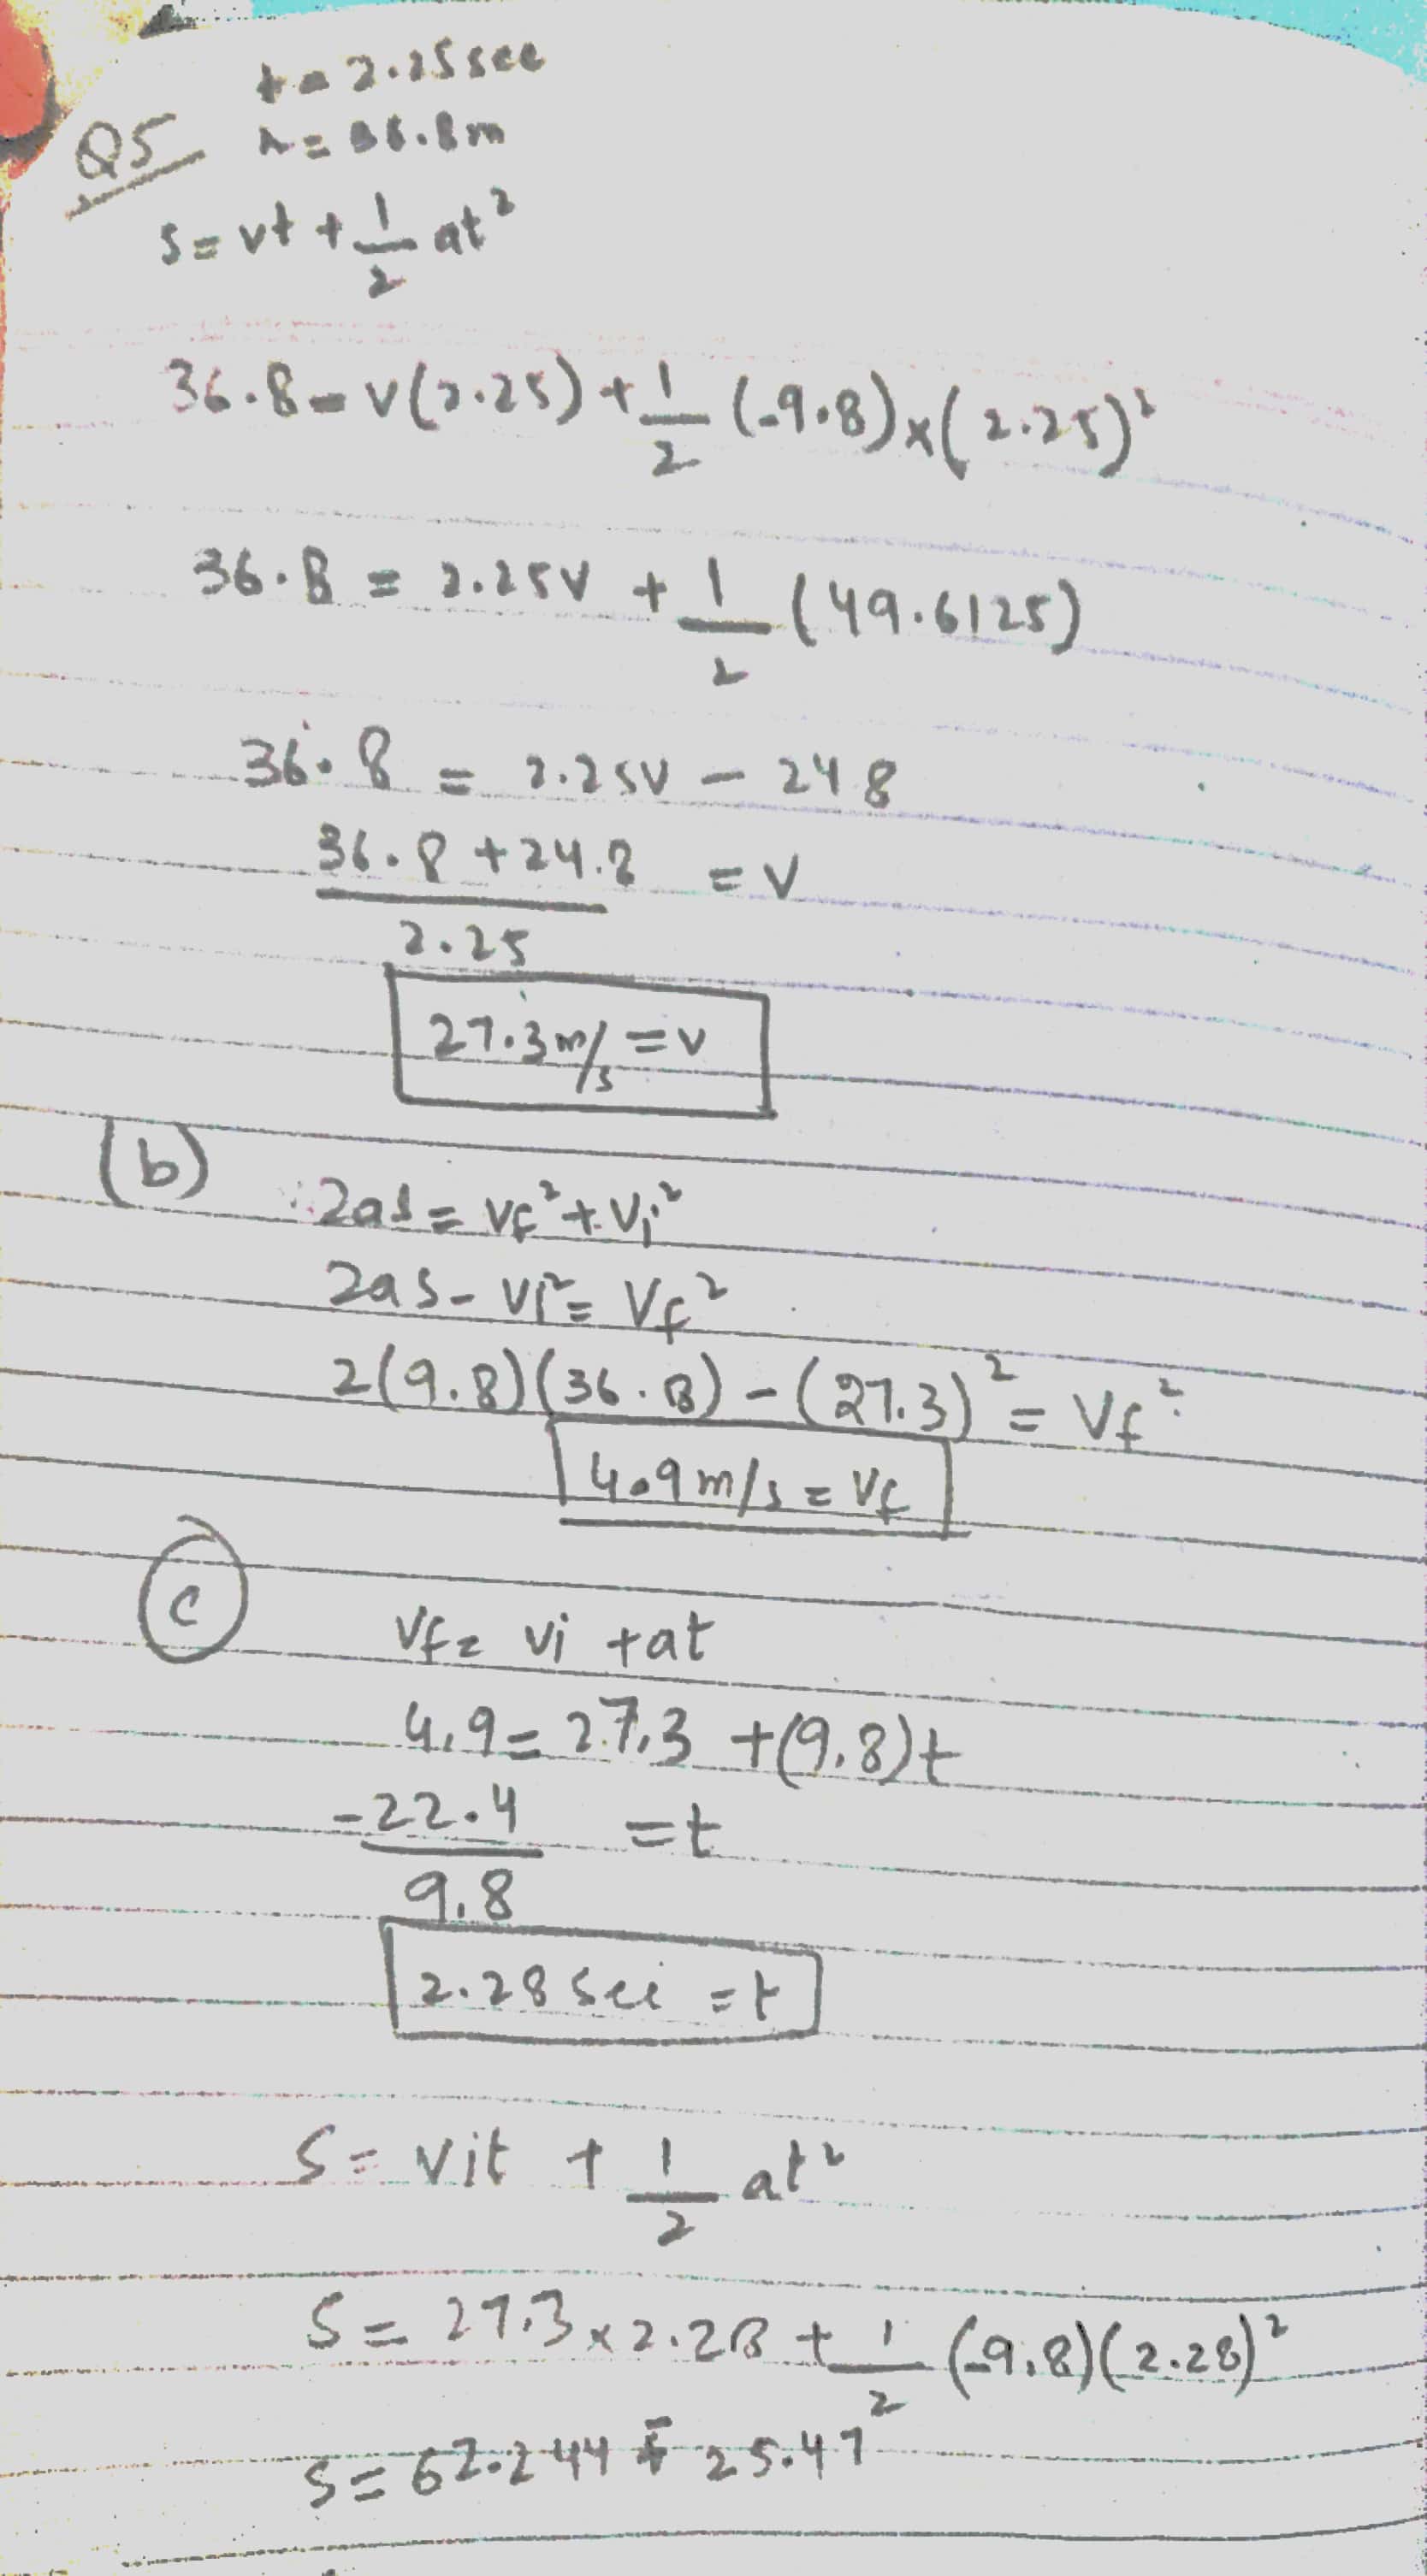 t = 2.25 sec
Q5 h = 36.8m
S = vt + 1/2 at²
36.8 = v(2.25) + 1/2 (-9.8)×(2.25)²
36.8 = 2.25v + 1/2 (49.6125)
36.8 = 2.25v - 24 8
36.8 + 24.8 / 2.25 = v
27.3 m/s = v
(b) 2as = vf² + vi²
2as - vi² = Vf²
2(9.8)(36.8) - (27.3)² = Vf²
4.9 m/s = Vf
(c) Vf = vi + at
4.9 = 27.3 + (9.8)t
-22.4 / 9.8 = t
2.28 sec = t
S = vit + 1/2 at²
S = 27.3 × 2.28 + 1/2 (-9.8)(2.28)²
S = 62.244 - 25.47